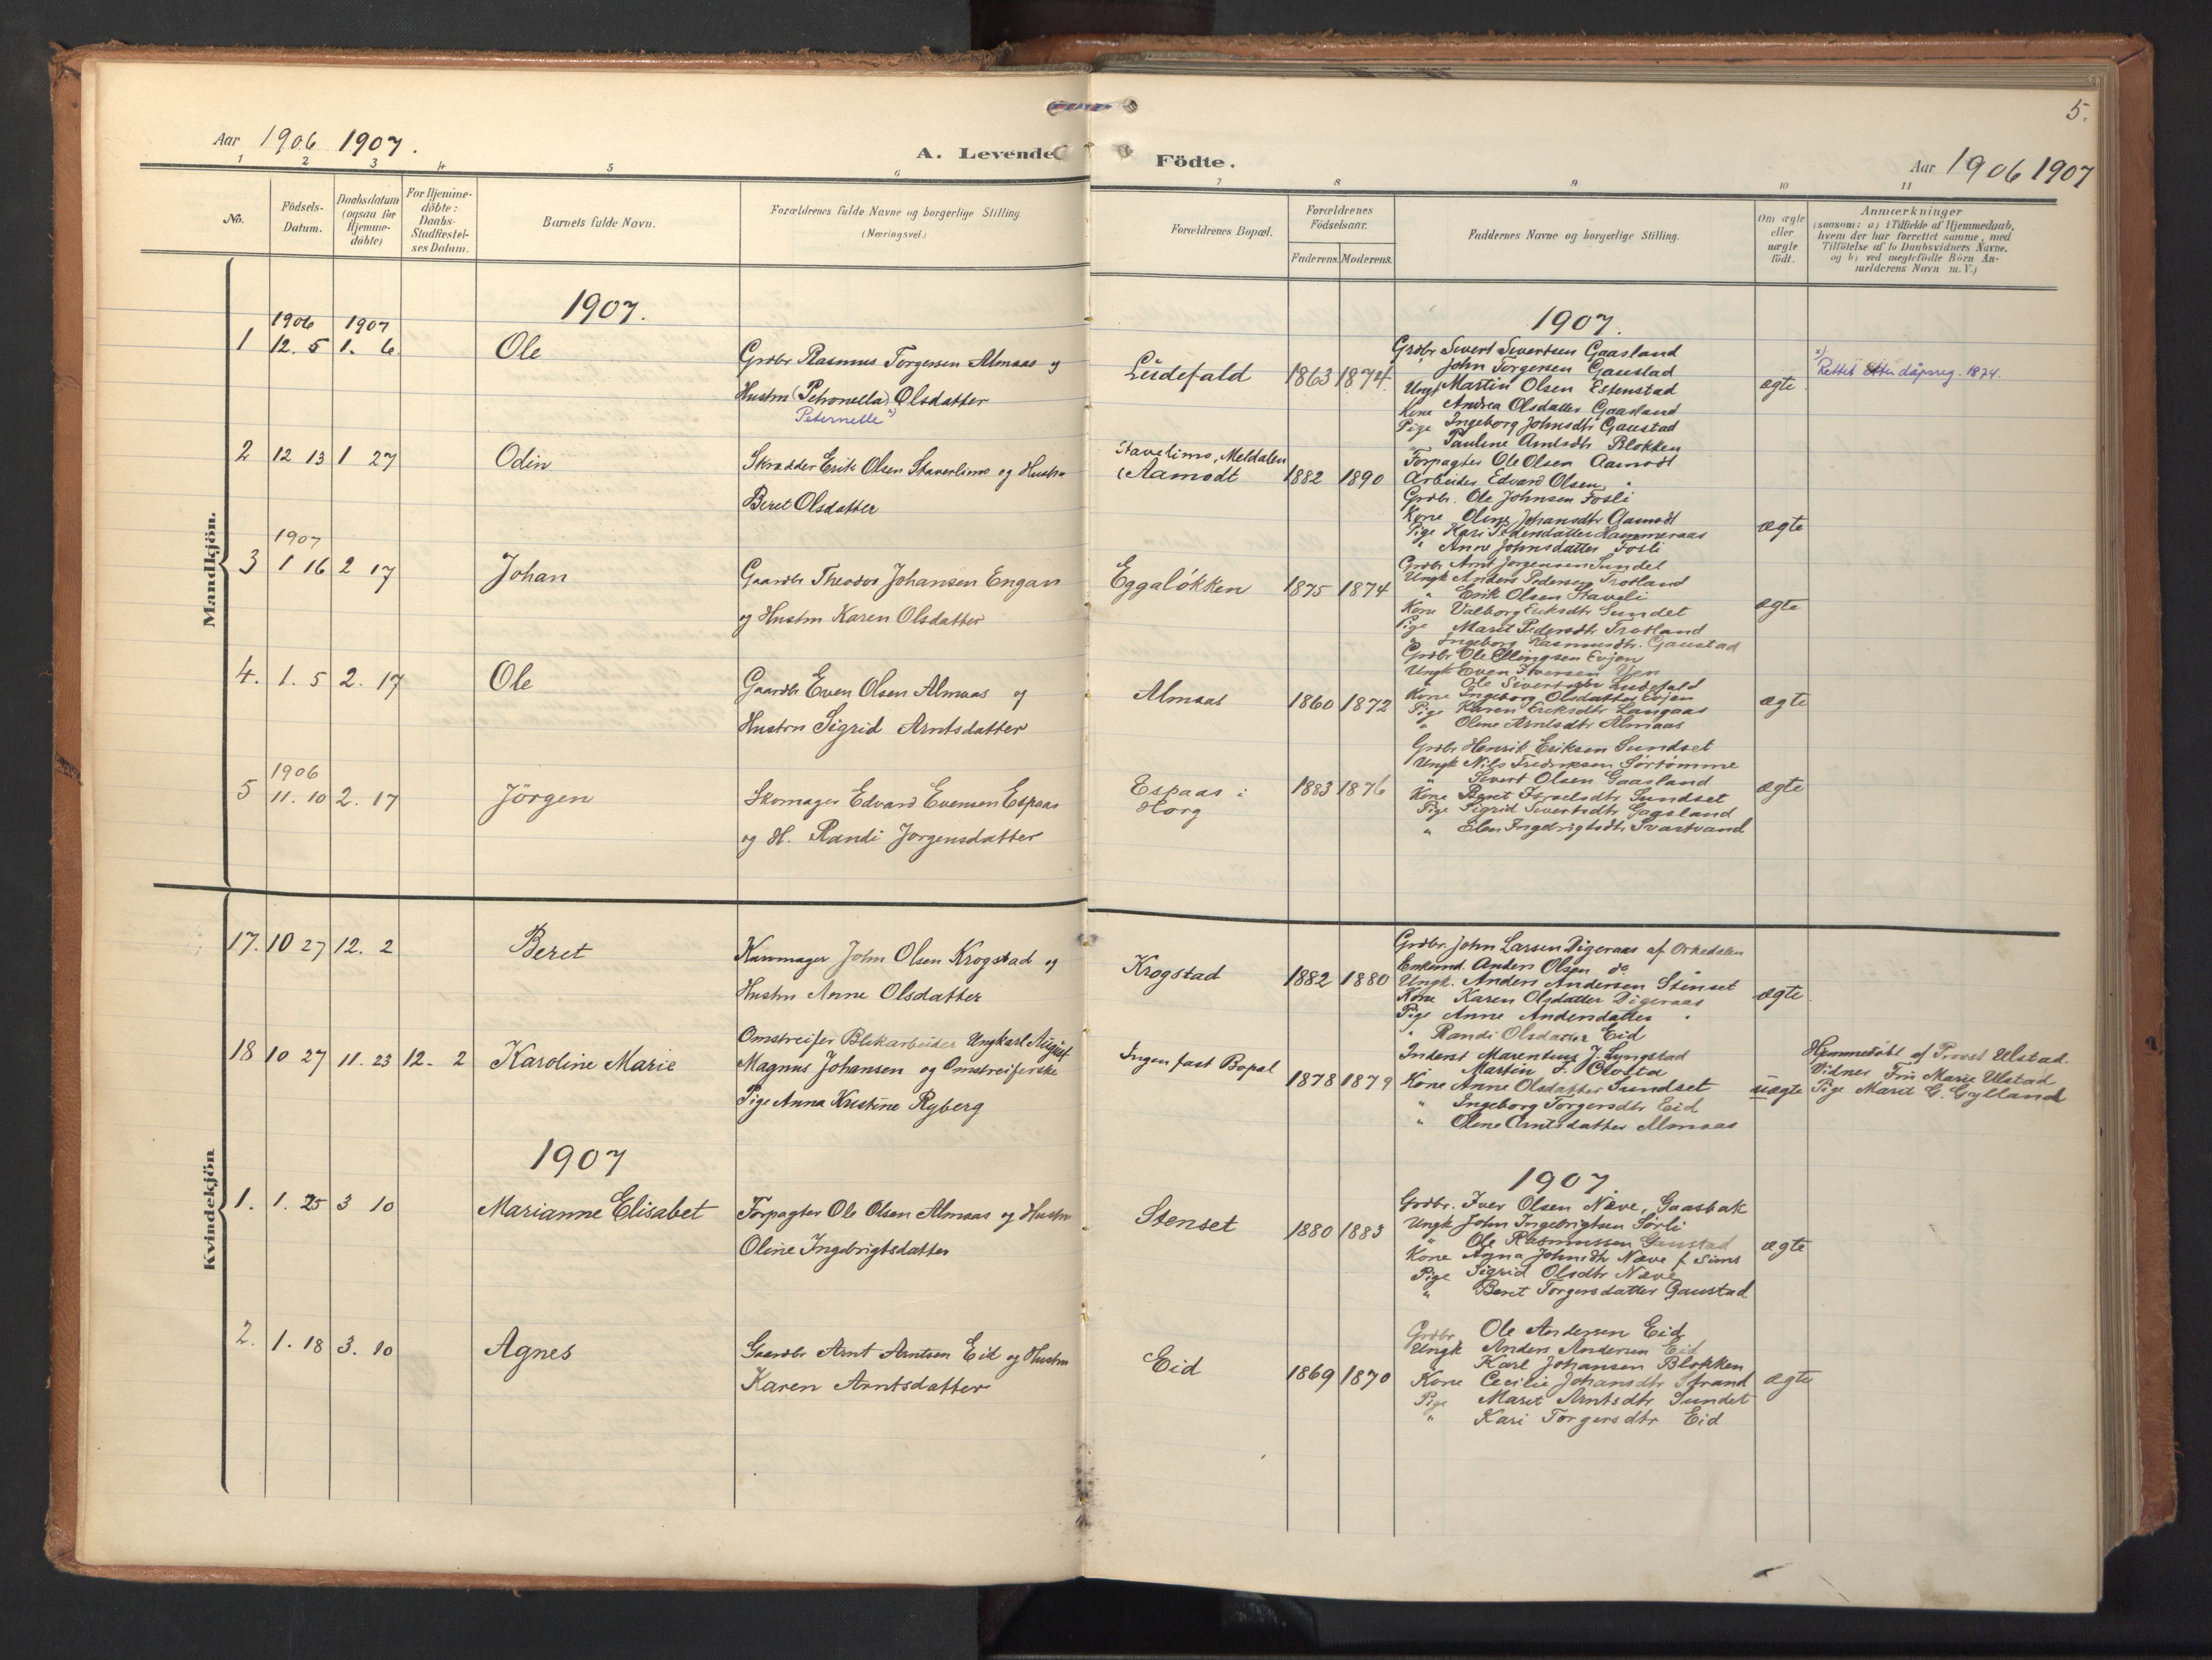 Aar 1906 1907.
A. Levende
1 2 3 4 5 6
No.
Födsels-Datum.
Daabsdatum (ogsaa for Hjemme-döbte)
For Hjemme-döbte: Daabs-Stadfestel-ses Datum.
Barnets fulde Navn.
Forældrenes fulde Navne og borgerlige Stilling.
(Næringsvei.)
Mandkjön.
1907.
1906 1907
1 12. 5 1. 6 Ole
Grdbr Rasmus Torgersen Almaas og
Hustru (Petronella) Olsdatter
Peternelle x)
2 12 13 1 27 Odin
Skrædder Erik Olsen Staverlimo og Hustru
Beret Olsdatter
1907
3 1 16 2 17 Johan
Gaardbr Theodor Johansen Engan
og Hustru Karen Olsdatter
4. 1. 5 2. 17 Ole
Gaardbr Even Olsen Almaas og
Hustru Sigrid Arntsdatter
1906
5 11. 10 2. 17 Jörgen
Skomager Edvard Evensen Espaas
og H. Randi Jorgensdatter
Kvindekjön
17. 10 27 12. 2 Beret
John Olsen Krogstad og
Hustru Anne Olsdatter
18 10 27 11. 23 12- 2 Karoline Marie
Omstreifer Blikarbeider Ungkarl August
Magnus Johansen og Omstreiferske
Pige Anna Kristine Ryberg
1907
1. 1. 25 3 10 Marianne Elisabet
Forpagter Ole Olsen Almaas og Hustru
Oline Ingebrigtsdatter
2. 1. 18 3. 10 Agnes
Gaardbr Arnt Arntsen Eid og Hustru
Karen Arntsdatter
5.
Födte.
Aar 1906 1907
7 8 9 10 11
Forældrenes Bopæl.
Forældrenes Födselsaar.
Faderens. Moderens.
Faddernes Navne og borgerlige Stilling.
Om ægte eller uægte födt.
Anmærkninger
(saasom: a) i Tilfælde af Hjemmedaab,
hvem der har forrettet samme, med
Tilföielse af to Daabsvidners Navne.
og b) ved uægtefödte Börn An-
melderens Navn m. V.)
1907.
Lüdefald 1863 1874. ægte
Grdbr Sivert Sivertsen Gaasland
" John Torgersen Gaustad
Ungk Martin Olsen Estenstad
Kone Andrea Olsdatter Gaasland
Pige Ingeborg Johnsdtr Gaustad
" Pauline Arntsdtr Blokken
x) Rettet etter dåpsreg. 1874.
Stavelimo, Meldalen
(Aamodt 1882 1890 ægte
Forpagter Ole Olsen Aamodt
Arbeider Edvard Olsen "
Grdbr. Ole Johnsen Fosli
Kone Oline Johansdtr Aamodt
Pige Kari Pedersdatter Hammeraas
" Anne Johnsdatter Fosli
Eggalökken 1875 1874 ægte
Grdbr Arnt Jorgensen Sundet
Ungk Anders Pedersen Trotland
" Erik Olsen Staveli
Kone Valborg Eriksdtr Sundet
Pige Marit Pedersdtr Trotland
" Ingeborg Rasmusdtr. Gaustad
Almaas 1860 1872 ægte
Grdbr Ole Ellingsen Evjen
Ungk Even Iversen Yen
" Ole Sivertsen Ludefald
Kone Ingeborg Olsdatter Evjen
Pige Karen Eriksdtr Langaas
" Oline Arntsdtr Almaas
Espaas i
Horg 1883 1876 ægte
Grdbr Henrik Eriksen Sundset
Ungk Nils Fredriksen Sörtömme
" Sivert Olsen Gaasland
Kone Beret Israelsdtr Sundset
Pige Sigrid Sivertsdtr Gaasland
" Elen Ingebrigtsdtr Svartvand
Krogstad 1882 1880 ægte
Grdbr. John Larsen Digeraas af Orkedalen
Enkemd. Anders Olsen do
Ungk. Anders Andersen Stenset
Kone Karen Olsdatter Digeraas
Pige Anne Andersdatter "
" Randi Olsdatter Eid
Ingen fast Bopæl 1878 1879 uægte
Inderst Marentius J. Lyngstad
" Martin J. Clovta
Kone Anne Olsdatter Sundset
" Ingeborg Torgersdtr Eid
" Oline Arntsdatter Almaas
Hjemmedöbt af Provst Ulstad.
Vidner Fru Marie Ulstad
Pige Marit G. Gylland
1907.
Stenset 1880 1883 ægte
Grdbr. Iver Olsen Næve, Gaasbak
Ungk John Ingebrigtsen Sörli
" Ole Rasmussen Gaustad
Kone Anna Johnsdtr Næve f. Sims
Pige Sigrid Olsdtr Næve
" Beret Torgersdatter Gaustad
Eid 1869 1870 ægte
Grdbr. Ole Andersen Eid
Ungk Anders Andersen Eid
Karl Johansen Blokken
Kone Cecilie Johansdtr Strand
Pige Marit Arntsdtr Sundet
" Kari Torgersdtr Eid